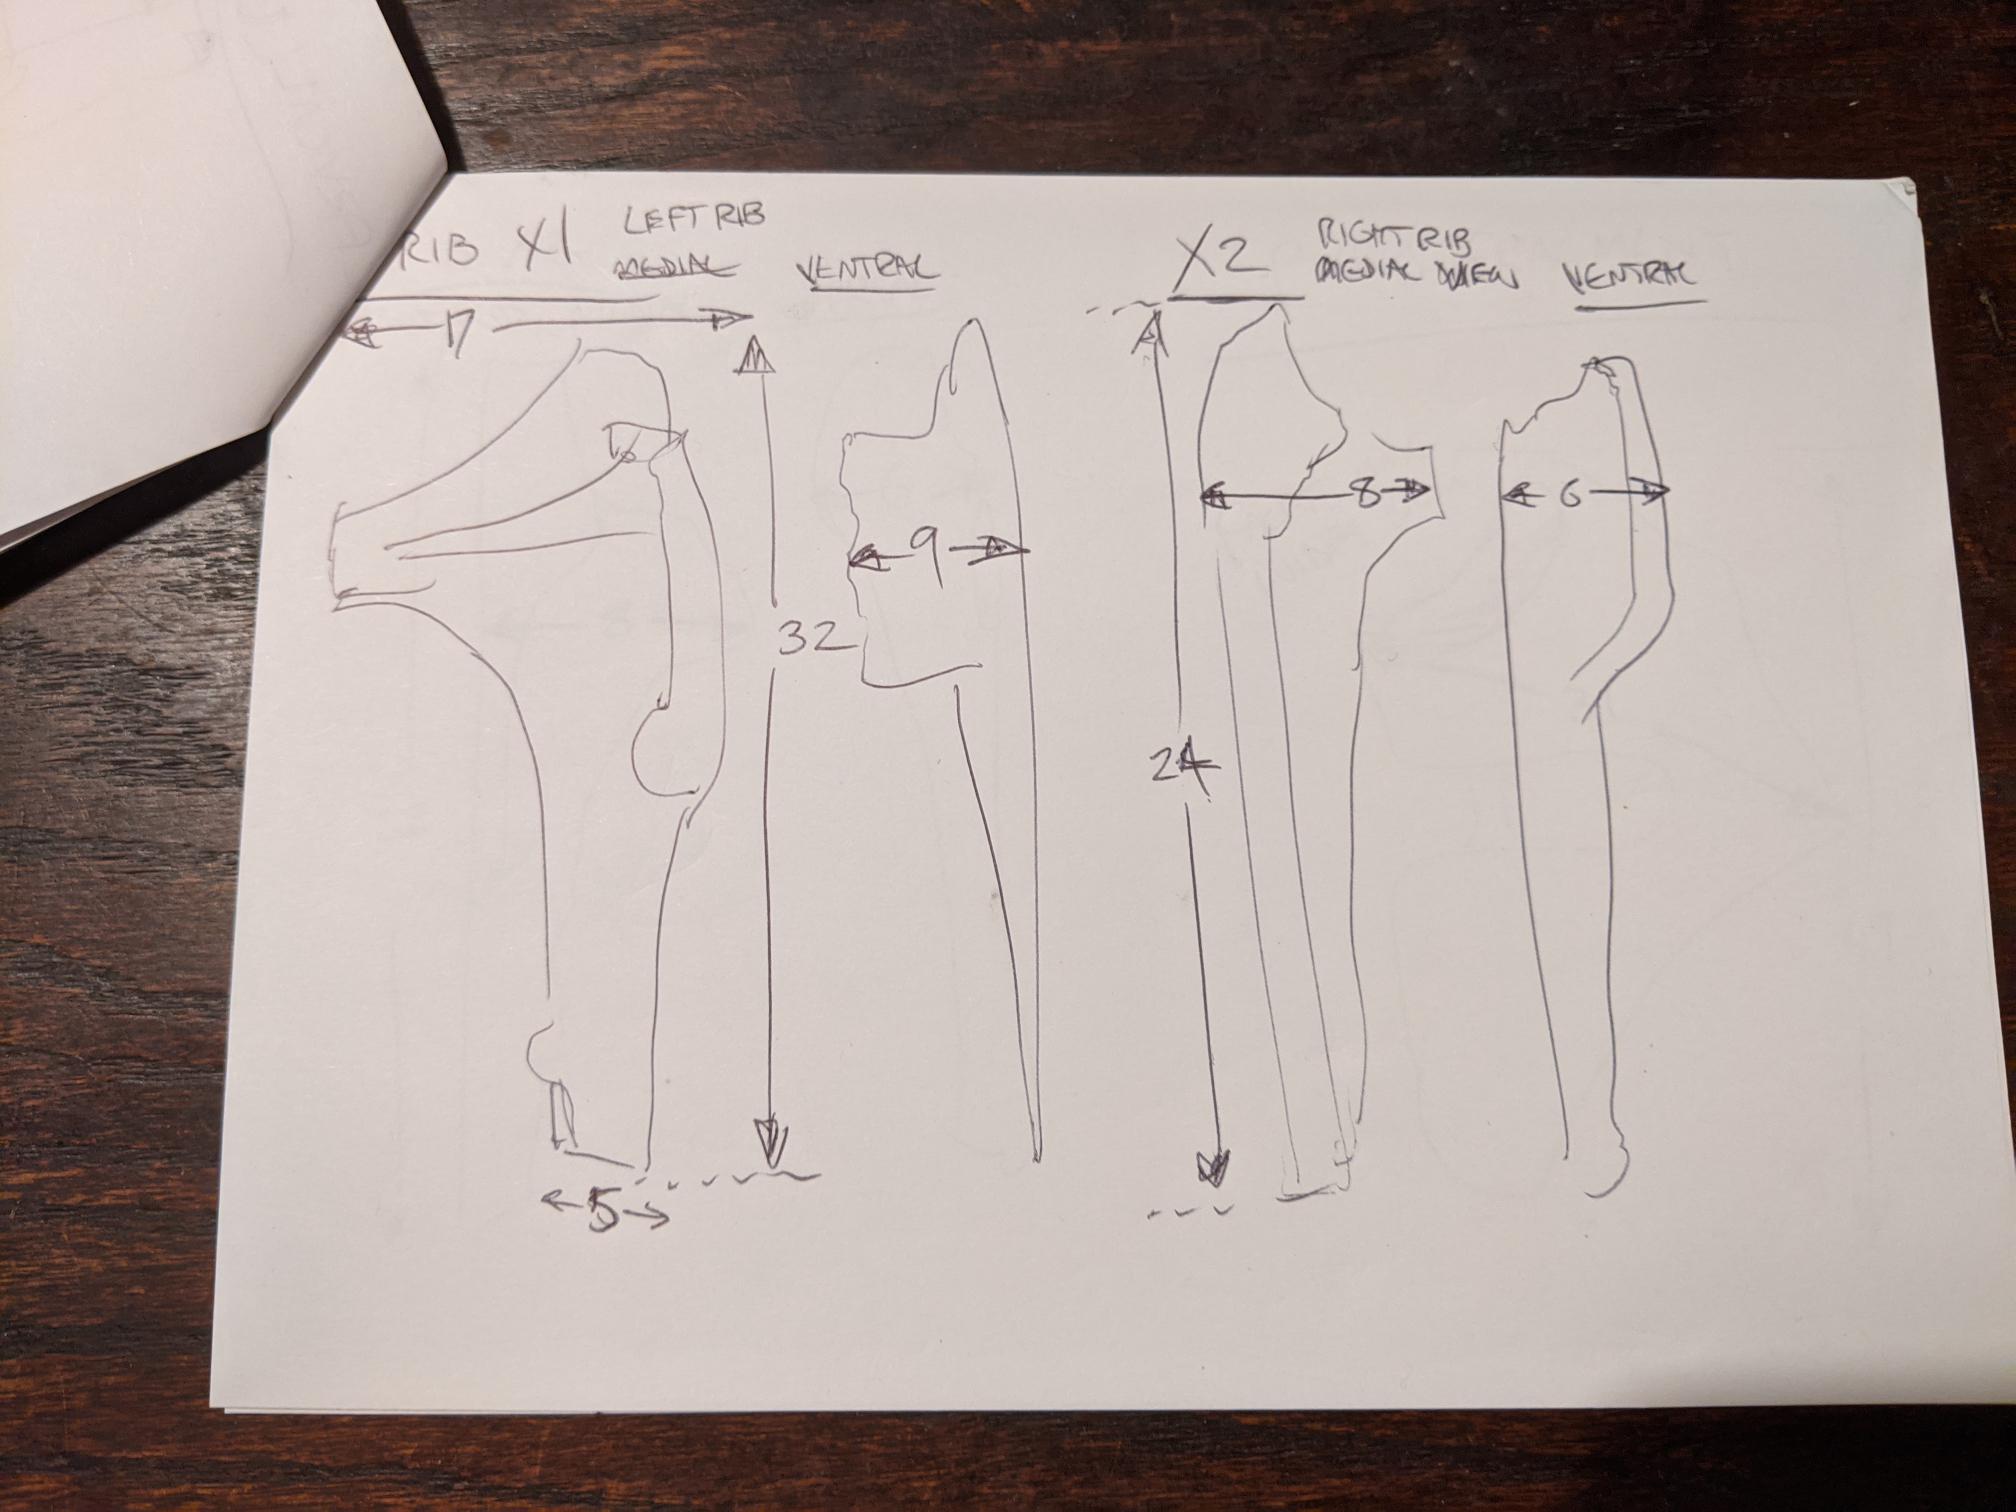 RIB X1
LEFT RIB
MEDIAL
VENTRAL
X2
RIGHT RIB
MEDIAL VIEW
VENTRAL
17
32
9
5
24
8
6